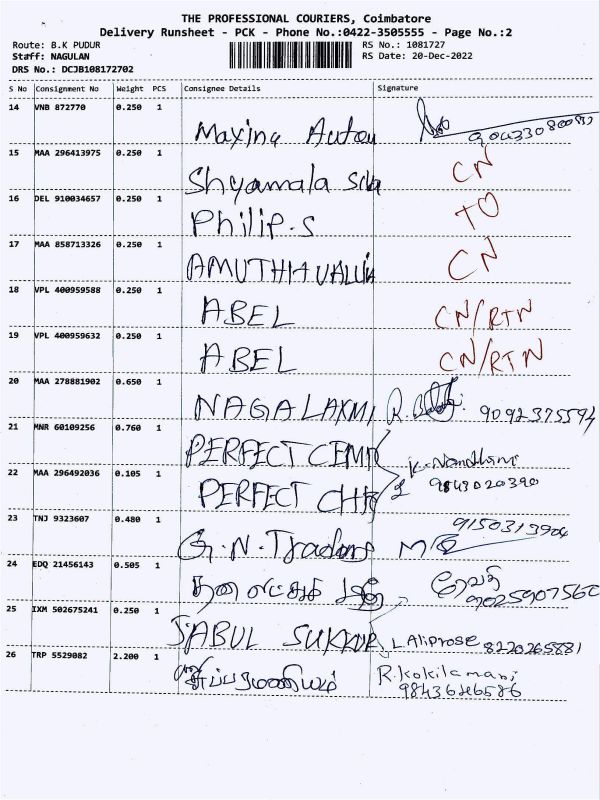 THE PROFESSIONAL COURIERS, Coimbatore
Delivery Runsheet - PCK - Phone No.:0422-3505555 - Page No.:2
Route: B.K PUDUR
RS No.: 1081727
Staff: NAGULAN
RS Date: 20-Dec-2022
DRS No.: DCJB108172702
S No Consignment No Weight PCS Consignee Details Signature
14 VNB 872770 0.250 1
Maxina
15 MAA 296413975 0.250 1
Shyamala CN
16 DEL 910034657 0.250 1
Philip.S TO
17 MAA 858713326 0.250 1
CN
18 VPL 400959588 0.250 1
ABEL CN/RTN
19 VPL 400959632 0.250 1
ABEL CN/RTN
20 MAA 278881902 0.650 1
NAGALAXMI R. 9092375594
21 MNR 60109256 0.760 1
PERFECT
22 MAA 296492036 0.105 1
PERFECT
K. Nandhini
9843020390
23 TNJ 9323607 0.480 1
G.N. 9150313904
24 EDQ 21456143 0.505 1
9025907560
25 IXM 502675241 0.250 1
JABUL SUKKUR L. Aliprose 8220265881
26 TRP 5529082 2.200 1
சிப்பரமணியம் R. Kokilamani
9843646586